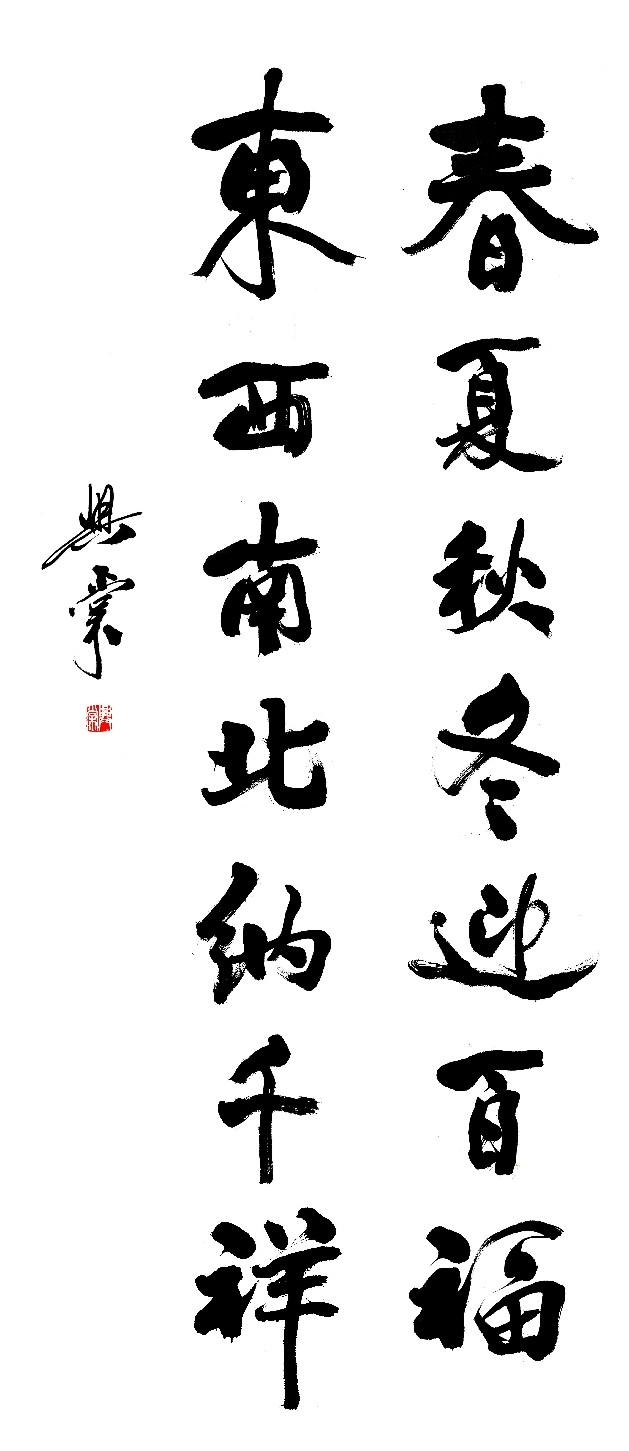 春夏秋冬迎百福
東西南北納千祥
興棠